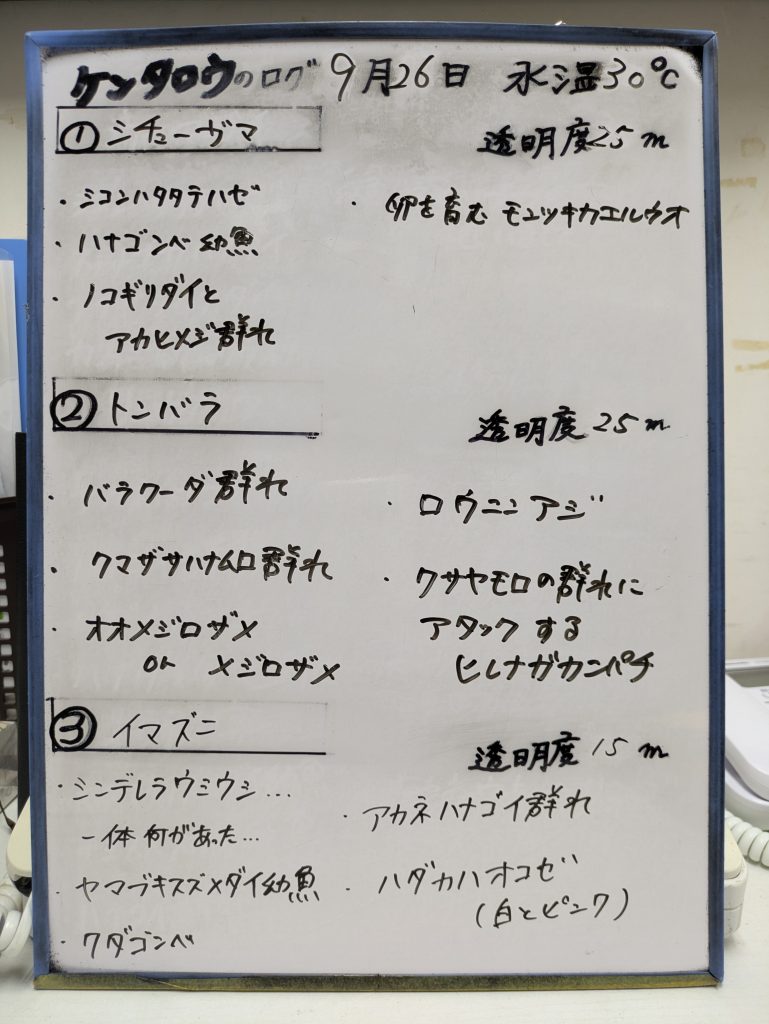 ケンタロウのログ 9月26日 水温30℃
① シチューガマ 透明度25m
・ミコンハタタテハゼ
・ハナゴンベ幼魚
・ノコギリダイと
アカヒメジ群れ
・卵を育む モンツキカエルウオ
② トンバラ 透明度25m
・バラクーダ群れ
・クマザサハナムロ群れ
・オオメジロザメ
or メジロザメ
・ロウニンアジ
・クサヤモロの群れに
アタックする
ヒレナガカンパチ
③ イマズニ 透明度15m
・シンデレラウミウシ…
一体何があった…
・ヤマブキスズメダイ幼魚
・クダゴンベ
・アカネハナゴイ群れ
・ハダカハオコゼ
(白とピンク)